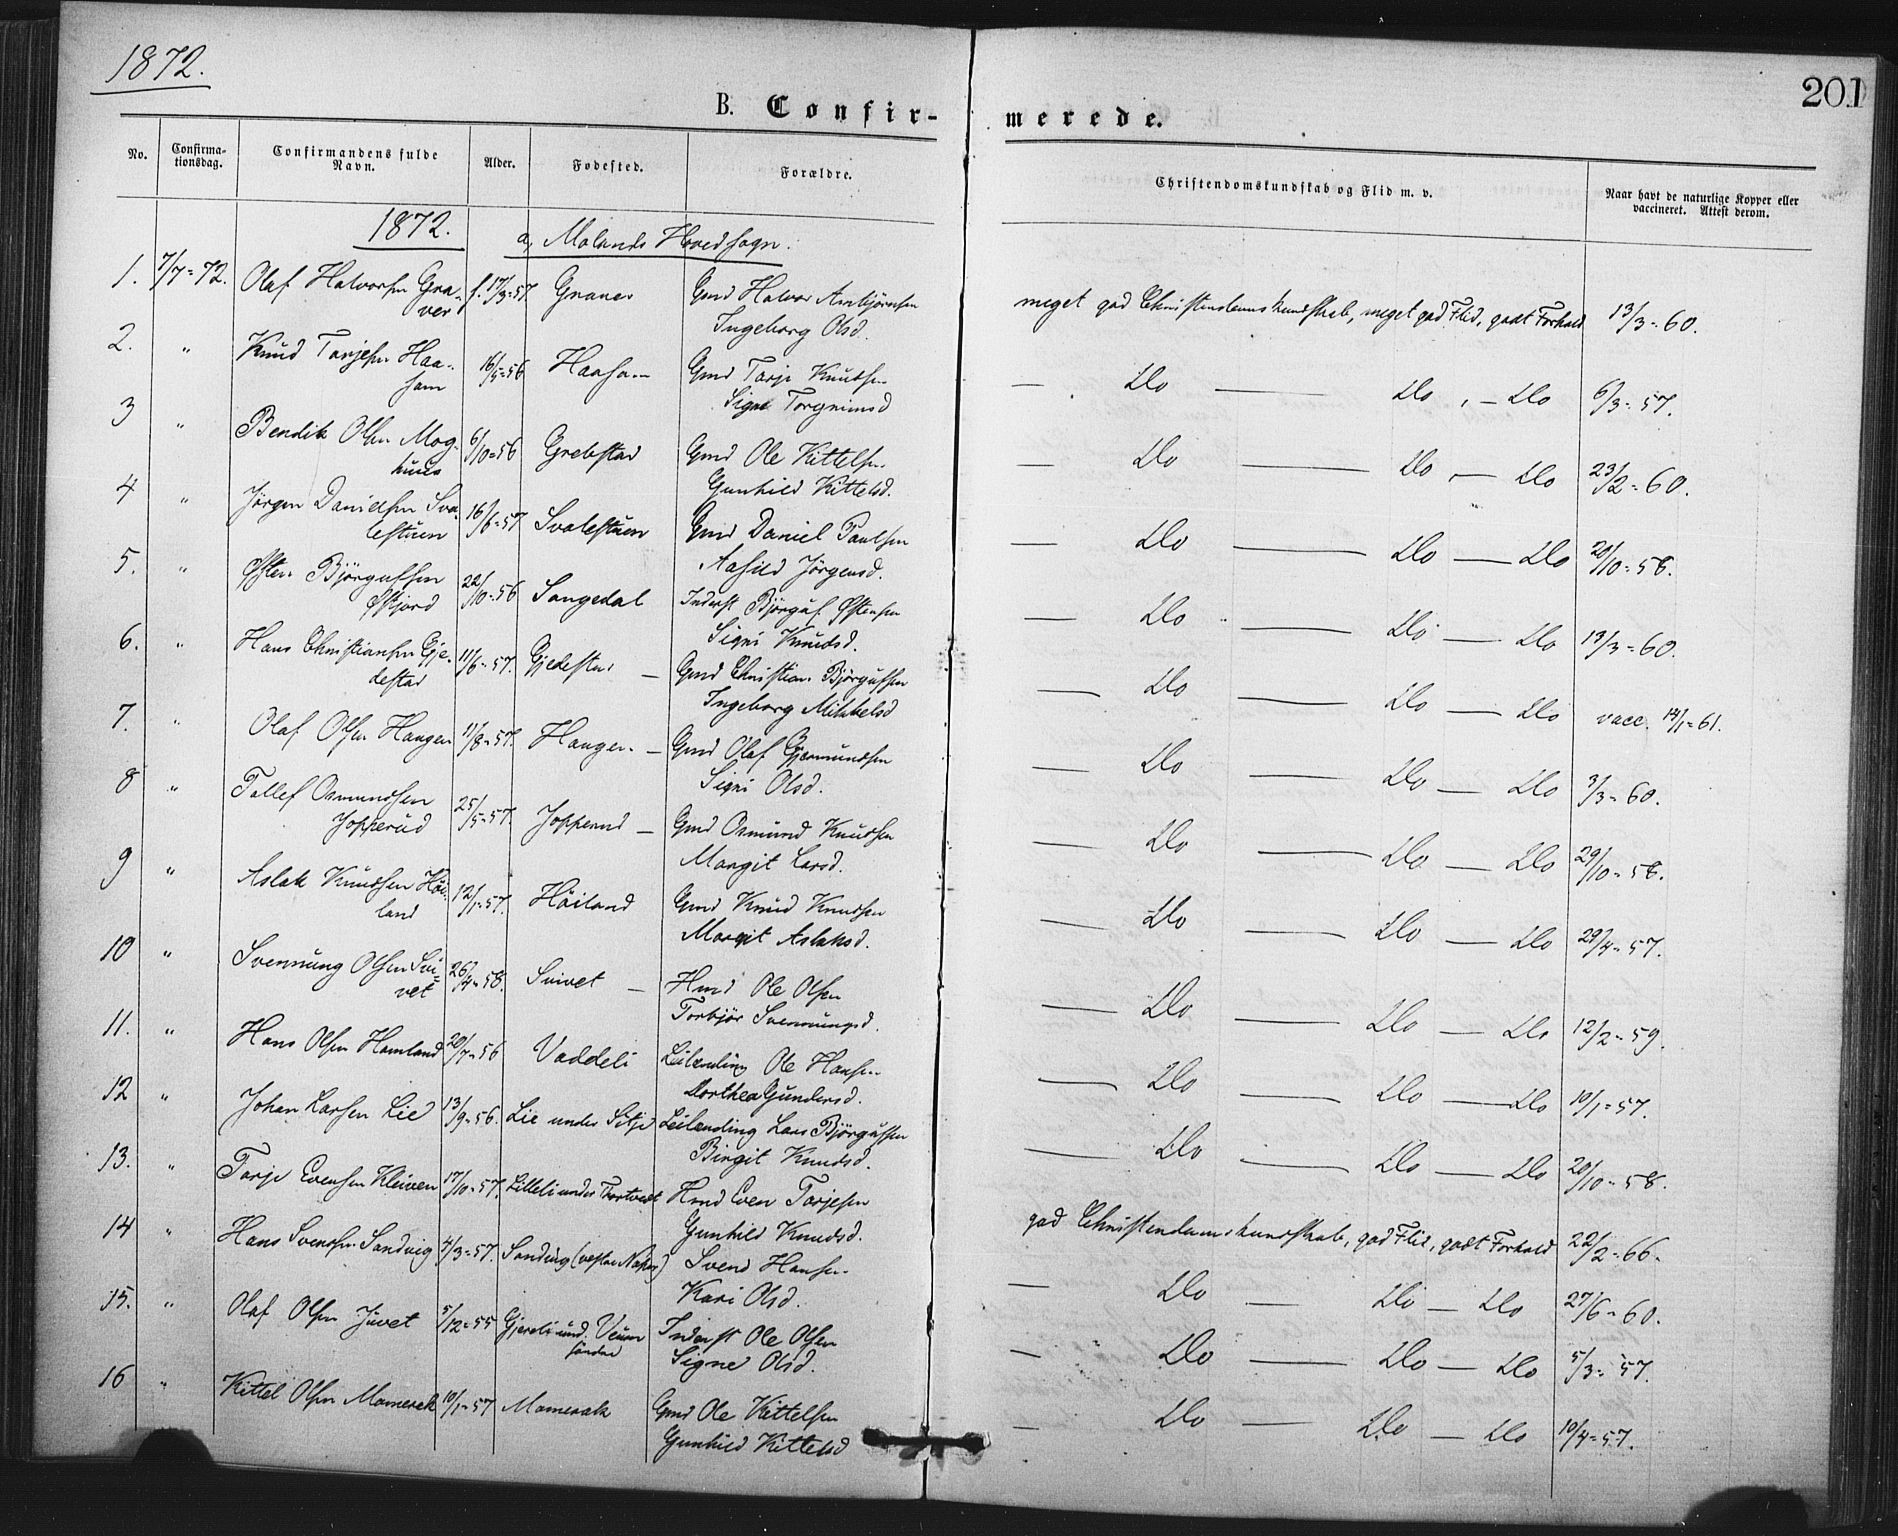 1872.
201
B. Confir-
merede.
No.
Confirma-
tionsdag.
Confirmandens fulde
Navn.
Alder.
Fødested.
Forældre.
Christendomskundskab og Flid m. v.
Naar havt de naturlige Kopper eller
vaccineret. Attest derom.
1872.
a, Molands Hovedsogn.
1. 7/7=72. Olaf Halvorsen Gra- f. 17/3=57 Graver Gmd Halvor Ambjørnsen meget god Christendomskundskab, meget god Flid, godt Forhold 13/3=60.
ver Ingeborg Olsd.
2. " Knud Tarjesen Haa- 16/5=56 Gmd Tarje Knudsen — Do — Do, — Do 6/3=57.
som Signe Torgrimsd
3 " Bendik Olsen Mog- 6/10=56 Grebstad Gmd Ole Kittelsen — Do — Do — Do 23/2=60.
huus Gunhild Kittelsd.
4 " Jørgen Danielsen Sva- 16/6=57 Svalestuen Gmd Daniel Paulsen — Do — Do — Do 20/10=56.
lestuen Aasild Jørgensd.
5. " Østen Bjørgufsen 22/10=56 Songedal Inderst Bjørguf Østensen — Do — Do — Do 13/3=60.
Øifjord Signi Knudsd.
6. " Hans Christiansen Gje- 11/6=57. Gjedestad — Gmd Christian Bjørgufsen — Do — Do — Do vacc. 14/1=61.
destad Ingeborg Mikkelsd
7. " Olaf Olsen Haugen 11/8=57. Haugen — Gmd Olaf Gjermundsen — Do — Do — Do 3/3=60.
Signi Olsd.
8 " Tallef Osmundsen 25/5=57. Jopperud — Gmd Osmund Knudsen — Do — Do — Do 29/10=58.
Jopperud Margit Larsd.
9 " Aslak Knudsen Høi- 12/1=57. Høiland Gmd Knud Knudsen — Do — Do — Do 29/4=57.
land Margit Aslaksd.
10 " Svennung Olsen Svi- 26/4=58. Svivet — Hmd Ole Olsen — Do — Do — Do 12/2=59.
vet Torbjør Svennungsd.
11. " Hans Olsen Hamland 20/7=56 Vaddeli Leilænding Ole Hansen — Do — Do — Do 10/1=57.
Dorthea Gundersd.
12 " Johan Larsen Lie 13/9=56. Lie under Sitje Leilænding Lars Bjørgufsen — Do — Do — Do 20/10=58.
Birgit Knudsd.
13. " Tarje Evensen Kleiven 17/10=57. Lilleli under Hmd Even Tarjesen god Christendomskundskab, god Flid, godt Forhold 22/2=66.
Gunhild Knudsd.
14 " Hans Svendsen Sandvig 4/3=57. Sandvig (vestre Næs) Svend Hansen — Do — Do — Do 27/6=60.
Kari Olsd.
15. " Olaf Olsen Juvet 5/12=55 Gjereli und. Veum Inderst Ole Olsen — Do — Do — Do 5/3=57.
søndre Signe Olsd.
16 " Kittel Olsen Momerak 10/1=57 Momerak Gmd Ole Kittelsen — Do — Do — Do 10/4=57.
Gunhild Kittelsd